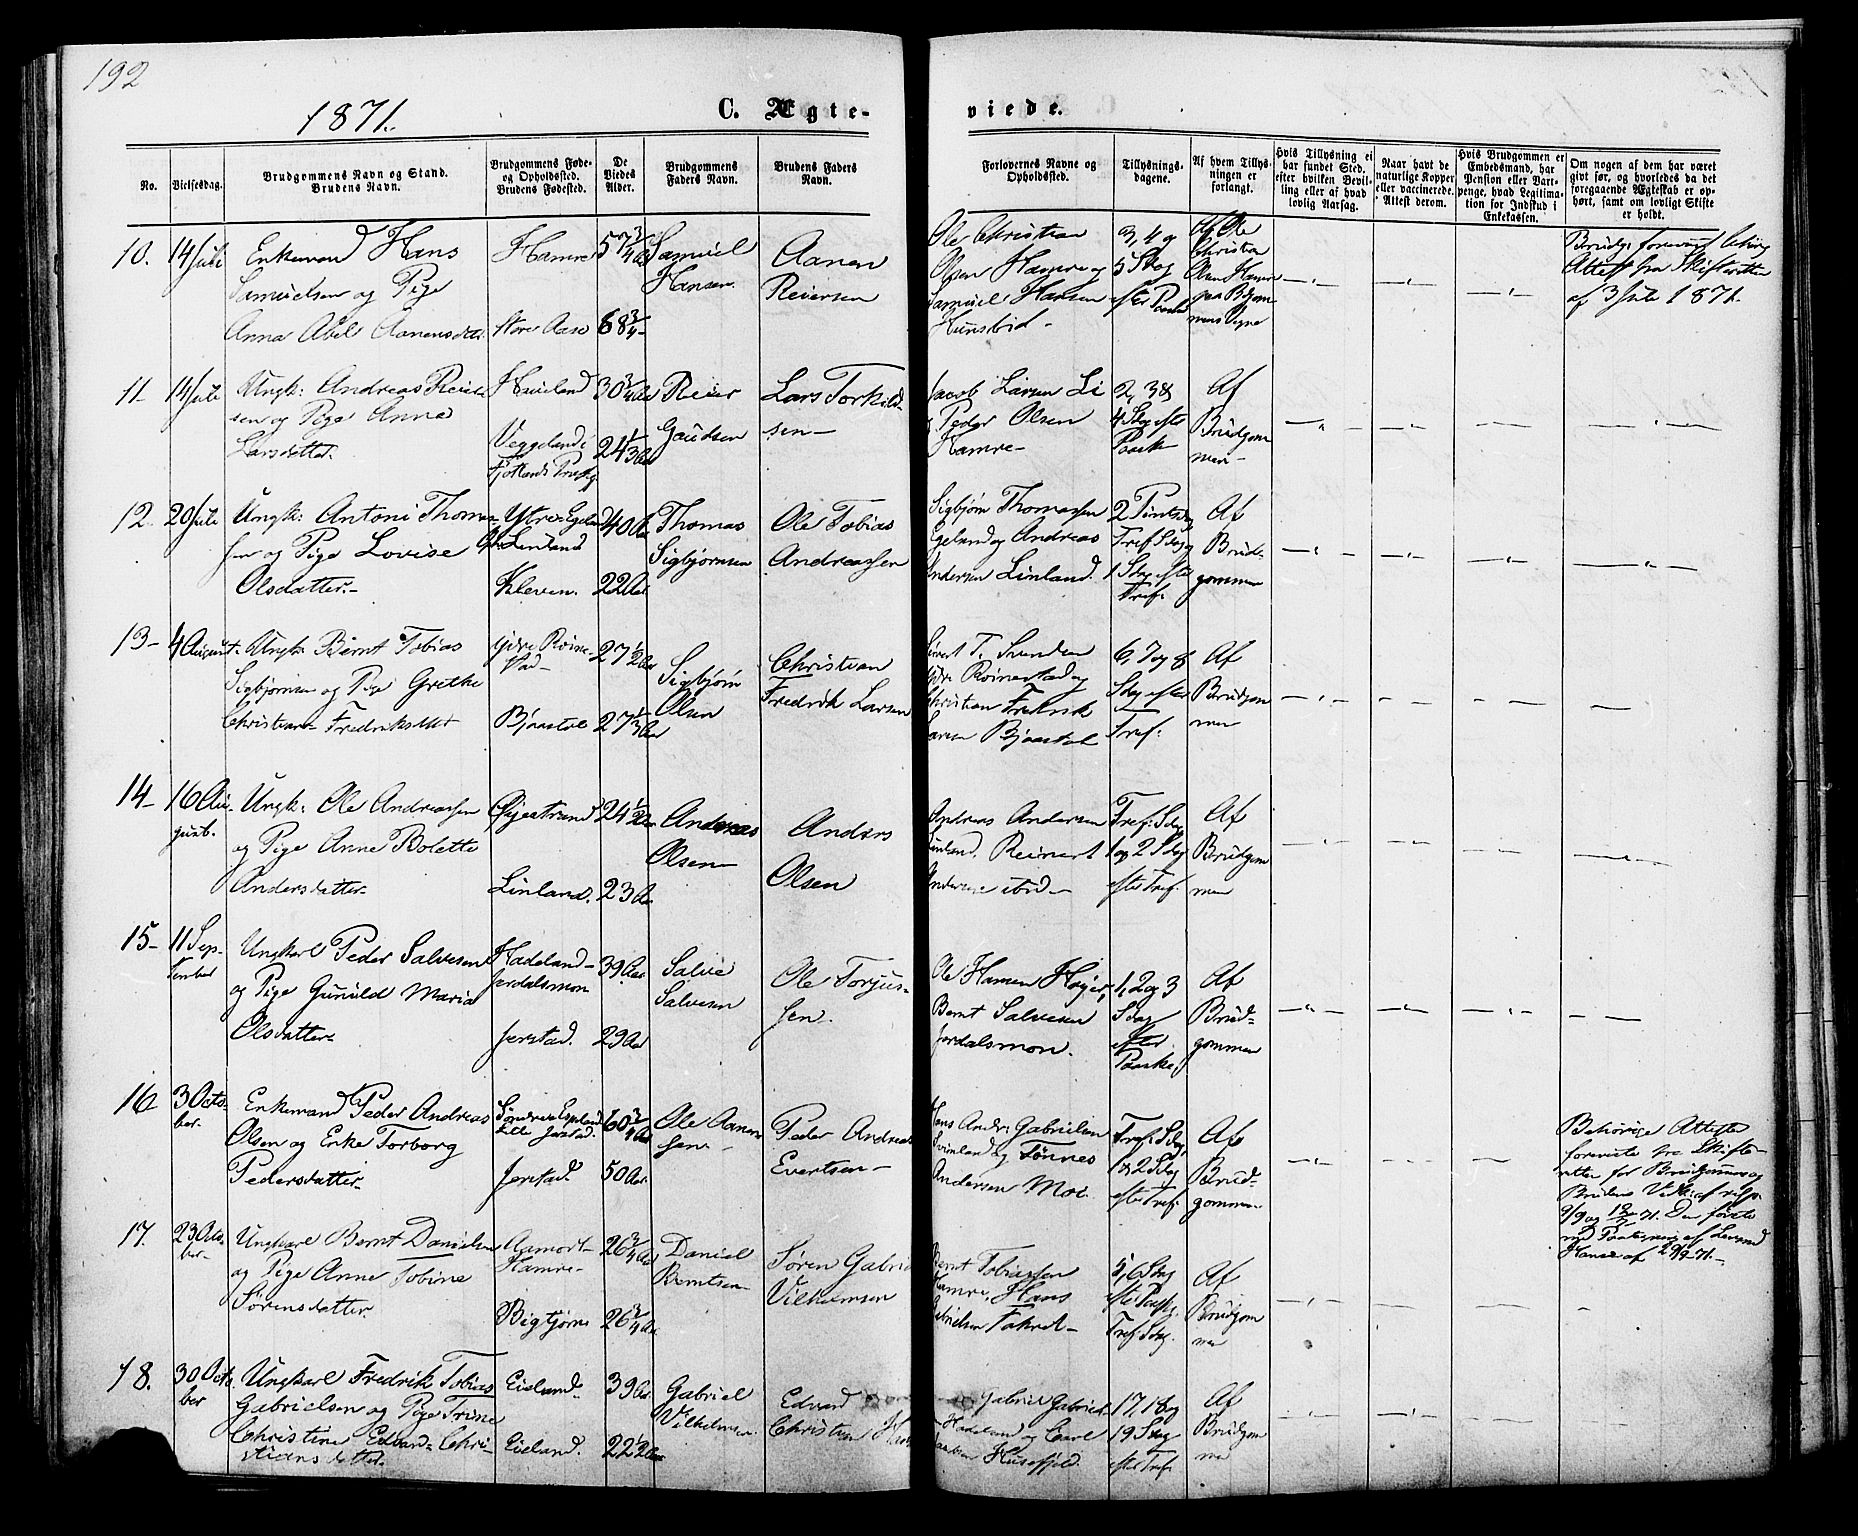 192
1871.
C. Ægte-
viede.
No.
Vielsesdag.
Brudgommens Navn og Stand.
Brudens Navn.
Brudgommens Føde-
og Opholdsted.
Brudens Fødested.
De
Viedes
Alder.
Brudgommens
Faders Navn.
Brudens Faders
Navn.
Forlovernes Navne og
Opholdsted.
Tillysnings-
dagene.
Af hvem Tillys-
ningen er
forlangt.
Hvis Tillysning ei
har fundet Sted,
efter hvilken Bevil-
ling eller af hvad
lovlig Aarsag.
Naar havt de
naturlige Kopper
eller vaccinerede.
Attest derom.
Hvis Brudgommen er
Embedsmand, har
Pension eller Vart-
penge, hvad Legitima-
tion for Indskud i
Enkekassen.
Om nogen af dem har været
gift før, og hvorledes da det
foregaaende Ægteskab er op-
hørt, samt om lovligt Skifte
er holdt.
10. 14 Juli
Enkemand Hans
Samuelsen og Pige
Anna Abel Aanensdtr.
Hamre
Store Aase
57 3/4 Aar
68 3/4
Samuel
Hansen.
Aanen
Reiersen
Ole Christian
Olsen Hamre og
Samuel Hansen
3, 4 og
5 Sdag
efter Paaske
Af Ole
Christian
Olsen Hamre
paa Brudgom-
mens Vegne
Attest fra Skifteretten
af 3 Juli 1871.
11- 14 Juli
Ungk: Andreas Reier-
sen og Pige Anne
Larsdatter.
Haueland
Veggeland i
Fjotlands Præstg.
30 3/4 Aar
24 1/3 Aar
Reier
Gaudsen
Lars Torkild-
sen-
Jacob Larsen Li
Peder Olsen
Hamre-
2, 3 &
4 Sdag efter
Paask
Af
Brudgom
men-
12. 20 Juli
Ungk: Antoni Thomas-
sen og Pige Lovise
Olsdatter.-
Ytre Egeland
Linland
Kleven.
40 Aar
22 Aar
Thomas
Sigbjørnsen
Ole Tobias
Andreassen
Sigbjørn Thomassen
Egeland og Andreas
Andersen Linland.
2 Pintsdag
Tref. Sdag
1 Sdag efter
Tref.
Af
Brud-
gommen
13- 4 August.
Ungk. Bernt Tobias
Sigbjørnsen og Pige Grethe
Christiane Fredriksdtr
Ydre Røine-
stad-
Bjaastøl
27 1/2 Aar
27 1/3 Aar
Sigbjørn
Olsen
Christian
Fredrik Larsen
Sivert T. Svendsen
Ydre Røinestad og
Christian Fredrik
Larsen Bjaastøl
6, 7 og 8
Sdag efter
Tref.
Af
Brudgom
men
14- 16 Au-
gust.
Ungk. Ole Andreassen
og Pige Anne Bolette
Andersdatter-
Øyestrand
Linland.
24 1/2 Aar
23 Aar
Andreas
Olsen-
Anders
Olsen
Andreas Andersen
Linland, Reinert
Andersen ibid-
Tref. Sdag
1 og 2 Sdag
efter Tref.
Af
Brudgom
men
15- 11 Sep-
tember
Ungkarl Peder Salvesen
og Pige Gunuld Maria
Olsdatter-
Hadeland-
Jordalsmon
Jerstad.
39 Aar
29 Aar
Salve
Salvesen
Ole Torjus-
sen-
Ole Hansen Høier,
Bernt Salvesen
Jordalsmon.
1, 2 og 3
Sdag
efter
Paaske,
Af
Brud-
gommen
16 3 Octo-
ber.
Enkemand Peder Andreas
Olsen og Enke Torborg
Pedersdatter-
Søndre Espeland
Jerstad.
Jerstad.
60 3/4 Aar
50 Aar
Ole Aanen-
sen-
Peder Andreas
Evertsen-
Hans Andr. Gabrielsen
Sveinland og Tønnes
Andersen Moi.
Tref. Sdag,
1 & 2 Sdag
efter Tref.
Af
Brud-
gommen
Behørige Attester
foreviste fra Skifte-
retten for Brudgommen og
17. 23 Octo-
ber-
Ungkarl Bernt Danielsen
og Pige Anne Tobine
Sørensdatter.
Aamodt-
Hamre-
Bigtjørn
26 3/4 Aar
26 3/4 Aar
Daniel
Berntsen-
Søren Gabriel
Vilhelmsen
Bernt Tobiassen
Hamre, Hans
Gabrielsen
5, 6 Sdag
efter Paaske,
Tref Sdag.
Af
Brudgom
men
18. 30 Octo-
ber
Ungkarl Fredrik Tobias
Gabrielsen og Pige Trine
Christine Edvard-Chri-
stiansdatter.
Eieland.
Eieland.
39 Aar
22 1/2 Aar
Gabriel
Vilhelmsen.
Edvard
Christian
Gabriel Gabriels.
Hadeland og Carl
Husefjeld.
17, 18 og
19 Sdag
efter Tref.
Af
Brudgom
men